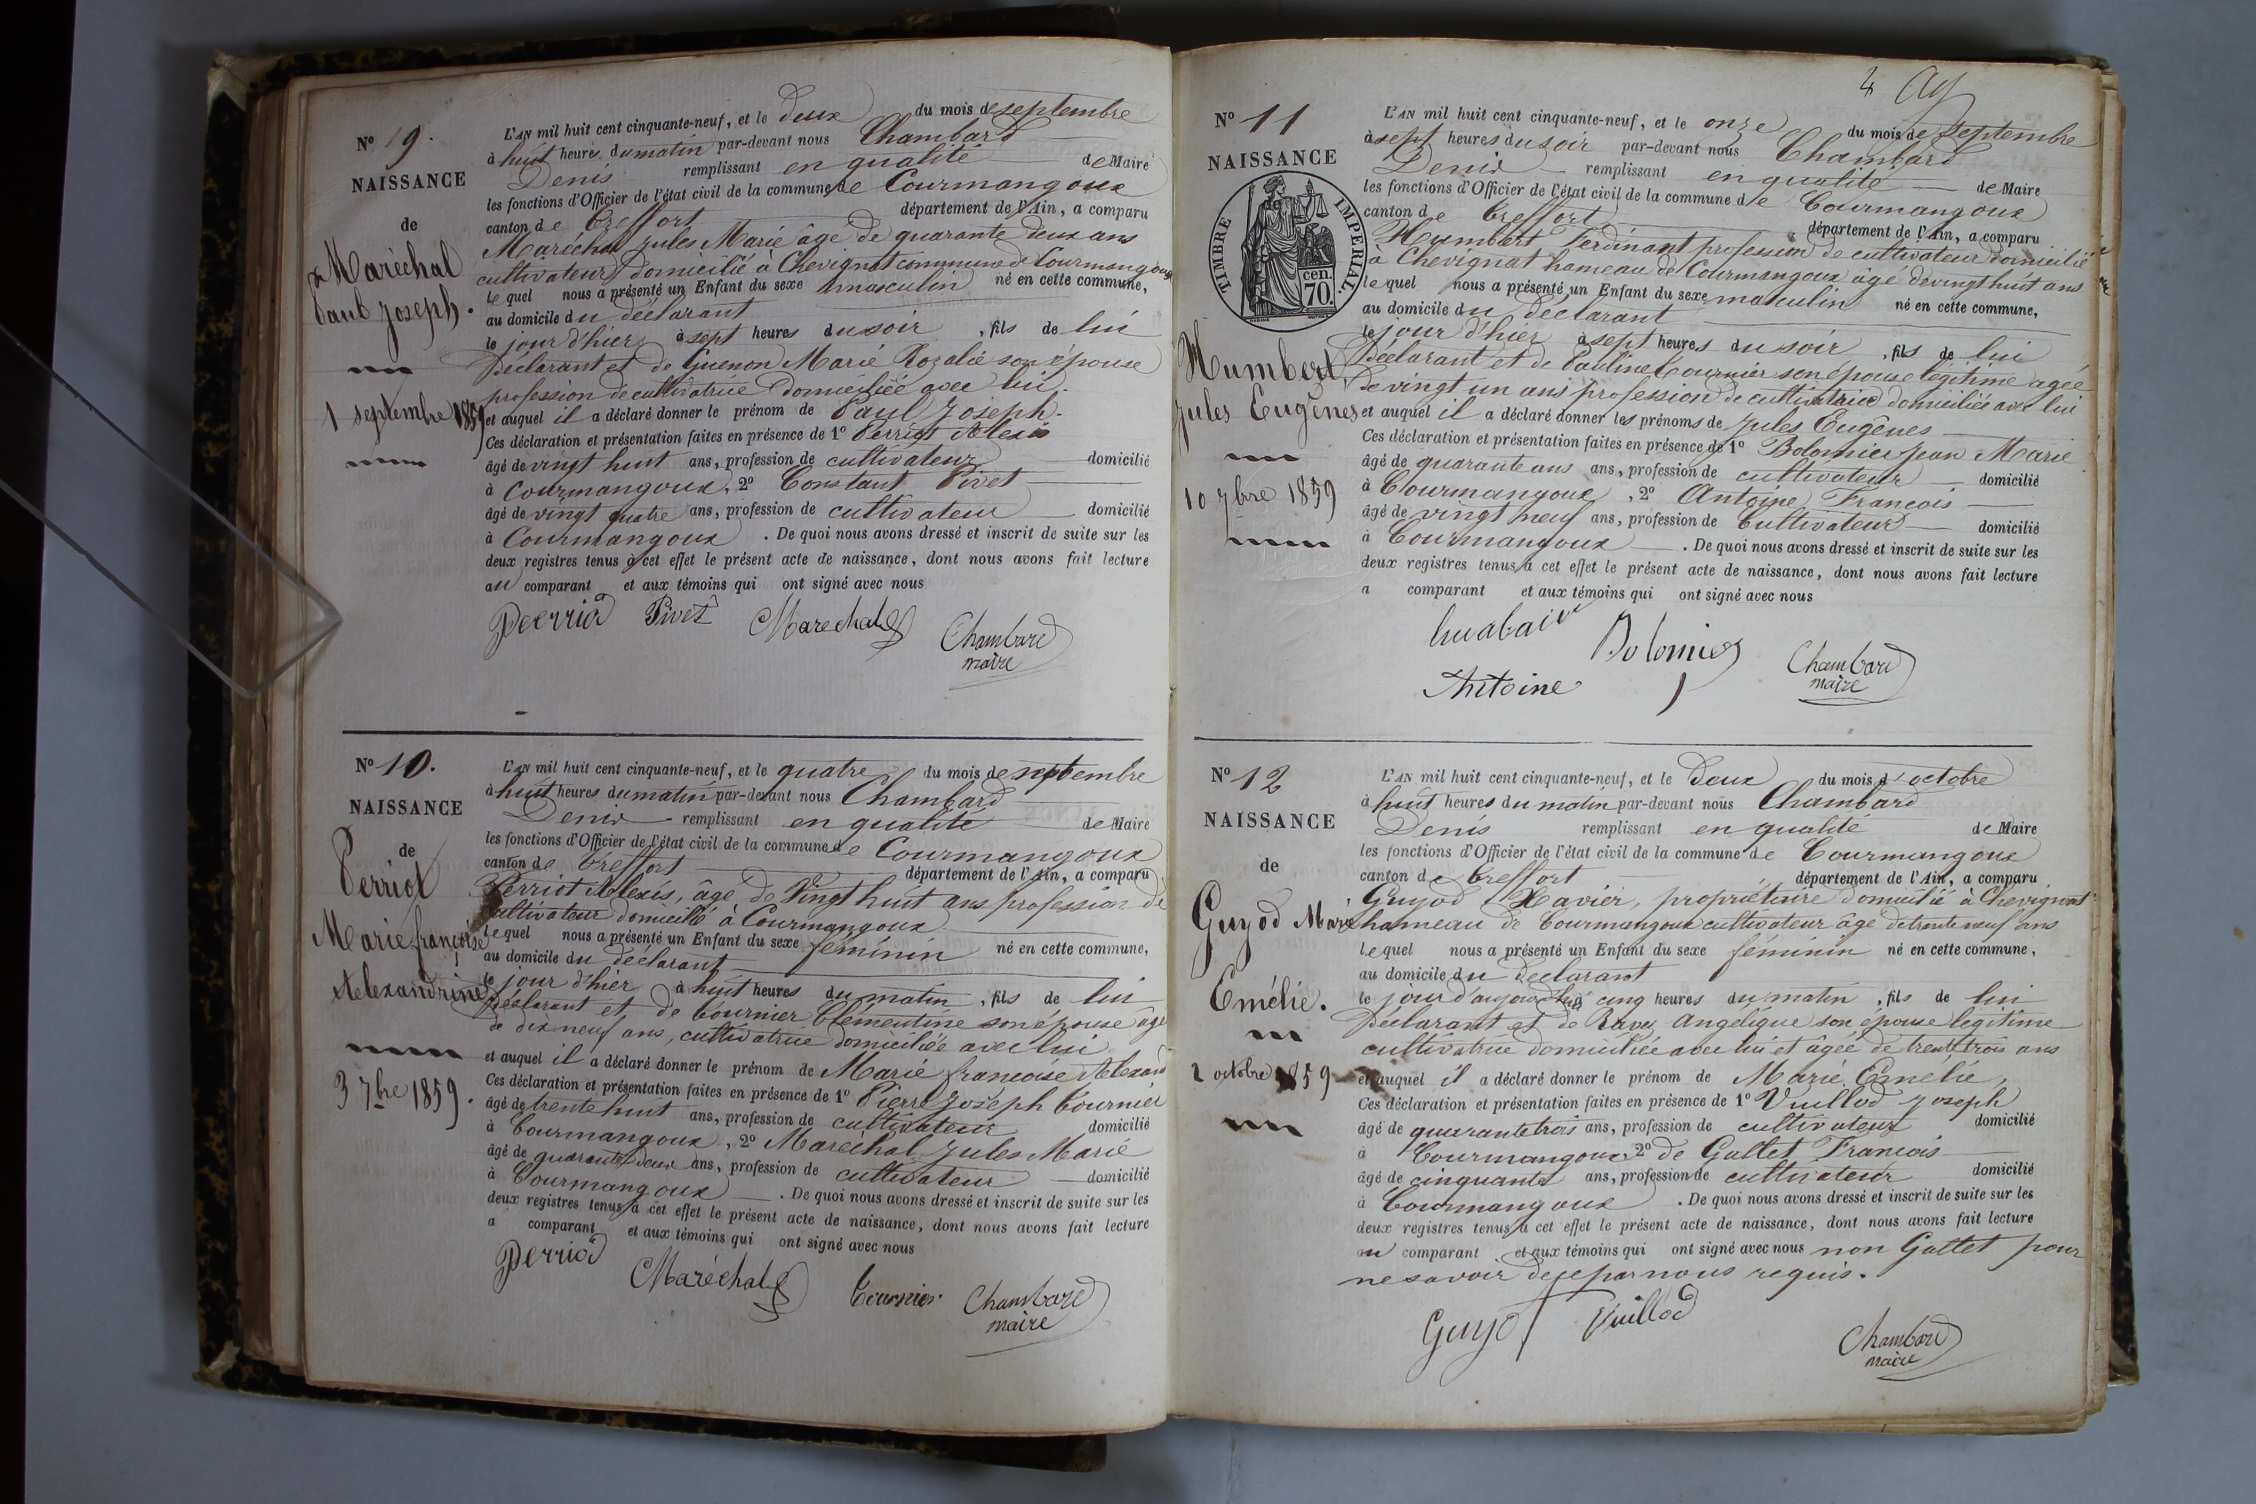 N° 19.
NAISSANCE
de
Maréchal
Paul Joseph.
1 septembre 1859
L'AN mil huit cent cinquante-neuf, et le deux du mois de septembre
à huit heures du matin par-devant nous Chambard
Denis remplissant en qualité de Maire
les fonctions d'Officier de l'état civil de la commune de Courmangoux
canton de Treffort département de l'Ain, a comparu
Maréchal Jules Marie âgé de quarante deux ans
cultivateur domicilié à Chevignat commune de Courmangoux
lequel nous a présenté un Enfant du sexe masculin né en cette commune,
au domicile du déclarant
le jour d'hier à sept heures du soir, fils de lui
Déclarant et de Guenon Marie Rozalie son épouse
profession de cultivatrice domiciliée avec lui.
et auquel il a déclaré donner le prénom de Paul Joseph.
Ces déclaration et présentation faites en présence de 1° Perriot Alexis
âgé de vingt huit ans, profession de cultivateur domicilié
à Courmangoux, 2° Constant Pivet
âgé de vingt quatre ans, profession de cultivateur domicilié
à Courmangoux. De quoi nous avons dressé et inscrit de suite sur les
deux registres tenus à cet effet le présent acte de naissance, dont nous avons fait lecture
au comparant et aux témoins qui ont signé avec nous
Perriod Pivet Marechal Chambard
maire
N° 10.
NAISSANCE
de
Perriot
Marie françoise
Alexandrine
3 7bre 1859.
L'AN mil huit cent cinquante-neuf, et le quatre du mois de septembre
à huit heures du matin par-devant nous Chambard
Denis remplissant en qualité de Maire
les fonctions d'Officier de l'état civil de la commune de Courmangoux
canton de Treffort département de l'Ain, a comparu
Perriot Alexis, âgé de Vingt huit ans profession de
cultivateur domicilié à Courmangoux
lequel nous a présenté un Enfant du sexe féminin né en cette commune,
au domicile du déclarant
le jour d'hier à huit heures du matin, fils de lui
Déclarant et de Cournier Clémentine son épouse âgé
de dix neuf ans, cultivatrice domiciliée avec lui
et auquel il a déclaré donner le prénom de Marie françoise Alexand
Ces déclaration et présentation faites en présence de 1° Pierre Joseph Cournier
âgé de trente huit ans, profession de cultivateur domicilié
à Courmangoux, 2° Maréchal Jules Marie
âgé de quarante deux ans, profession de cultivateur domicilié
à Courmangoux. De quoi nous avons dressé et inscrit de suite sur les
deux registres tenus à cet effet le présent acte de naissance, dont nous avons fait lecture
a comparant et aux témoins qui ont signé avec nous
Perriod Maréchal Cournier Chambard
maire
4
N° 11
NAISSANCE
TIMBRE IMPERIAL.
70 cen.
Humbert
Jules Eugênes
10 7bre 1859
L'AN mil huit cent cinquante-neuf, et le onze du mois de septembre
à sept heures du soir par-devant nous Chambard
Denis remplissant en qualité de Maire
les fonctions d'Officier de l'état civil de la commune de Courmangoux
canton de Treffort département de l'Ain, a comparu
Humbert Ferdinant profession de cultivateur domicilié
à Chevignat hameau de Courmangoux âgé de vingt huit ans
lequel nous a présenté un Enfant du sexe masculin né en cette commune,
au domicile du déclarant
le jour d'hier à sept heures du soir, fils de lui
Déclarant et de Pauline Cournier son épouse légitime agée
de vingt un ans profession de cultivatrice domiciliée avec lui
et auquel il a déclaré donner les prénoms de Jules Eugênes
Ces déclaration et présentation faites en présence de 1° Bolomier Jean Marie
âgé de quarante ans ans, profession de cultivateur domicilié
à Courmangoux, 2° Antoine François
âgé de vingt neuf ans, profession de Cultivateur domicilié
à Courmangoux. De quoi nous avons dressé et inscrit de suite sur les
deux registres tenus à cet effet le présent acte de naissance, dont nous avons fait lecture
a comparant et aux témoins qui ont signé avec nous
Bolomier Chambard
maire
Antoine
N° 12
NAISSANCE
de
Guyod Marie
Emélie.
2 octobre 1859
L'AN mil huit cent cinquante-neuf, et le Deux du mois d'octobre
à huit heures du matin par-devant nous Chambard
Denis remplissant en qualité de Maire
les fonctions d'Officier de l'état civil de la commune de Courmangoux
canton de Treffort département de l'Ain, a comparu
Guyod Xavier, propriétaire domicilié à Chevignat
hameau de Courmangoux cultivateur âgé de trente neuf ans
lequel nous a présenté un Enfant du sexe féminin né en cette commune,
au domicile du declarant
le jour d'aujourd'hui cinq heures du matin, fils de lui
Déclarant et de Ravet Angélique son épouse légitime
cultivatrice domiciliée avec lui et âgée de trente trois ans
et auquel il a déclaré donner le prénom de Marie Emélie,
Ces déclaration et présentation faites en présence de 1° Vuillod Joseph
âgé de quarante trois ans, profession de cultivateur domicilié
à Courmangoux 2° de Gattet François
âgé de cinquante ans, profession de cultivateur domicilié
à Courmangoux. De quoi nous avons dressé et inscrit de suite sur les
deux registres tenus à cet effet le présent acte de naissance, dont nous avons fait lecture
au comparant et aux témoins qui ont signé avec nous non Gattet pour
ne savoir de ce par nous requis.
Guyot Vuillod Chambard
maire